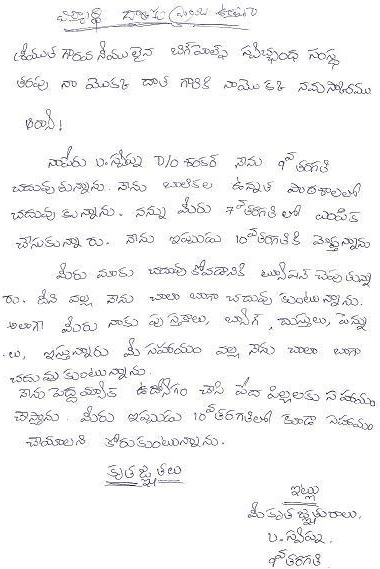 విద్యార్థి దాతకు వ్రాయు ఉత్తరం
శ్రీయుత గౌరవనీయులైన బిగ్‌హెల్ప్ స్వచ్ఛంద సంస్థ
తరపు నా యొక్క దాత గారికి నాయొక్క నమస్కారములు
నాపేరు ల. స్వప్న D/o శంకర్ నేను 9వ తరగతి
చదువుతున్నాను. నేను బాలికల ఉన్నత పాఠశాలలో
చదువుకున్నాను. నన్ను మీరు 7వతరగతి లో ఎంపిక
చేసుకున్నారు. నేను ఇప్పుడు 10వతరగతికి వెళ్తున్నాను
మీరు మాకు చదువుకోవడానికి ట్యూషన్ చెపుతున్న
రు. దీని వల్ల నేను చాలా బాగా చదువు కుంటున్నాను.
అలాగే మీరు నాకు పుస్తకాలు, బ్యాగ్, దుస్తులు, పెన్ను
లు, ఇస్తున్నారు మీ సహాయం వల్ల నేను చాలా బాగా
చదువుకుంటున్నాను.
నేను పెద్దయ్యాక ఉద్యోగం చేసి పేద పిల్లలకు సహాయం
చేస్తాను. మీరు ఇప్పుడు 10వతరగతిలో కూడా సహాయం
చేయాలని కోరుకుంటున్నాను.
కృతజ్ఞతలు
ఇట్లు
మీకృతజ్ఞతురాలు,
ల. స్వప్న.
9వతరగతి.